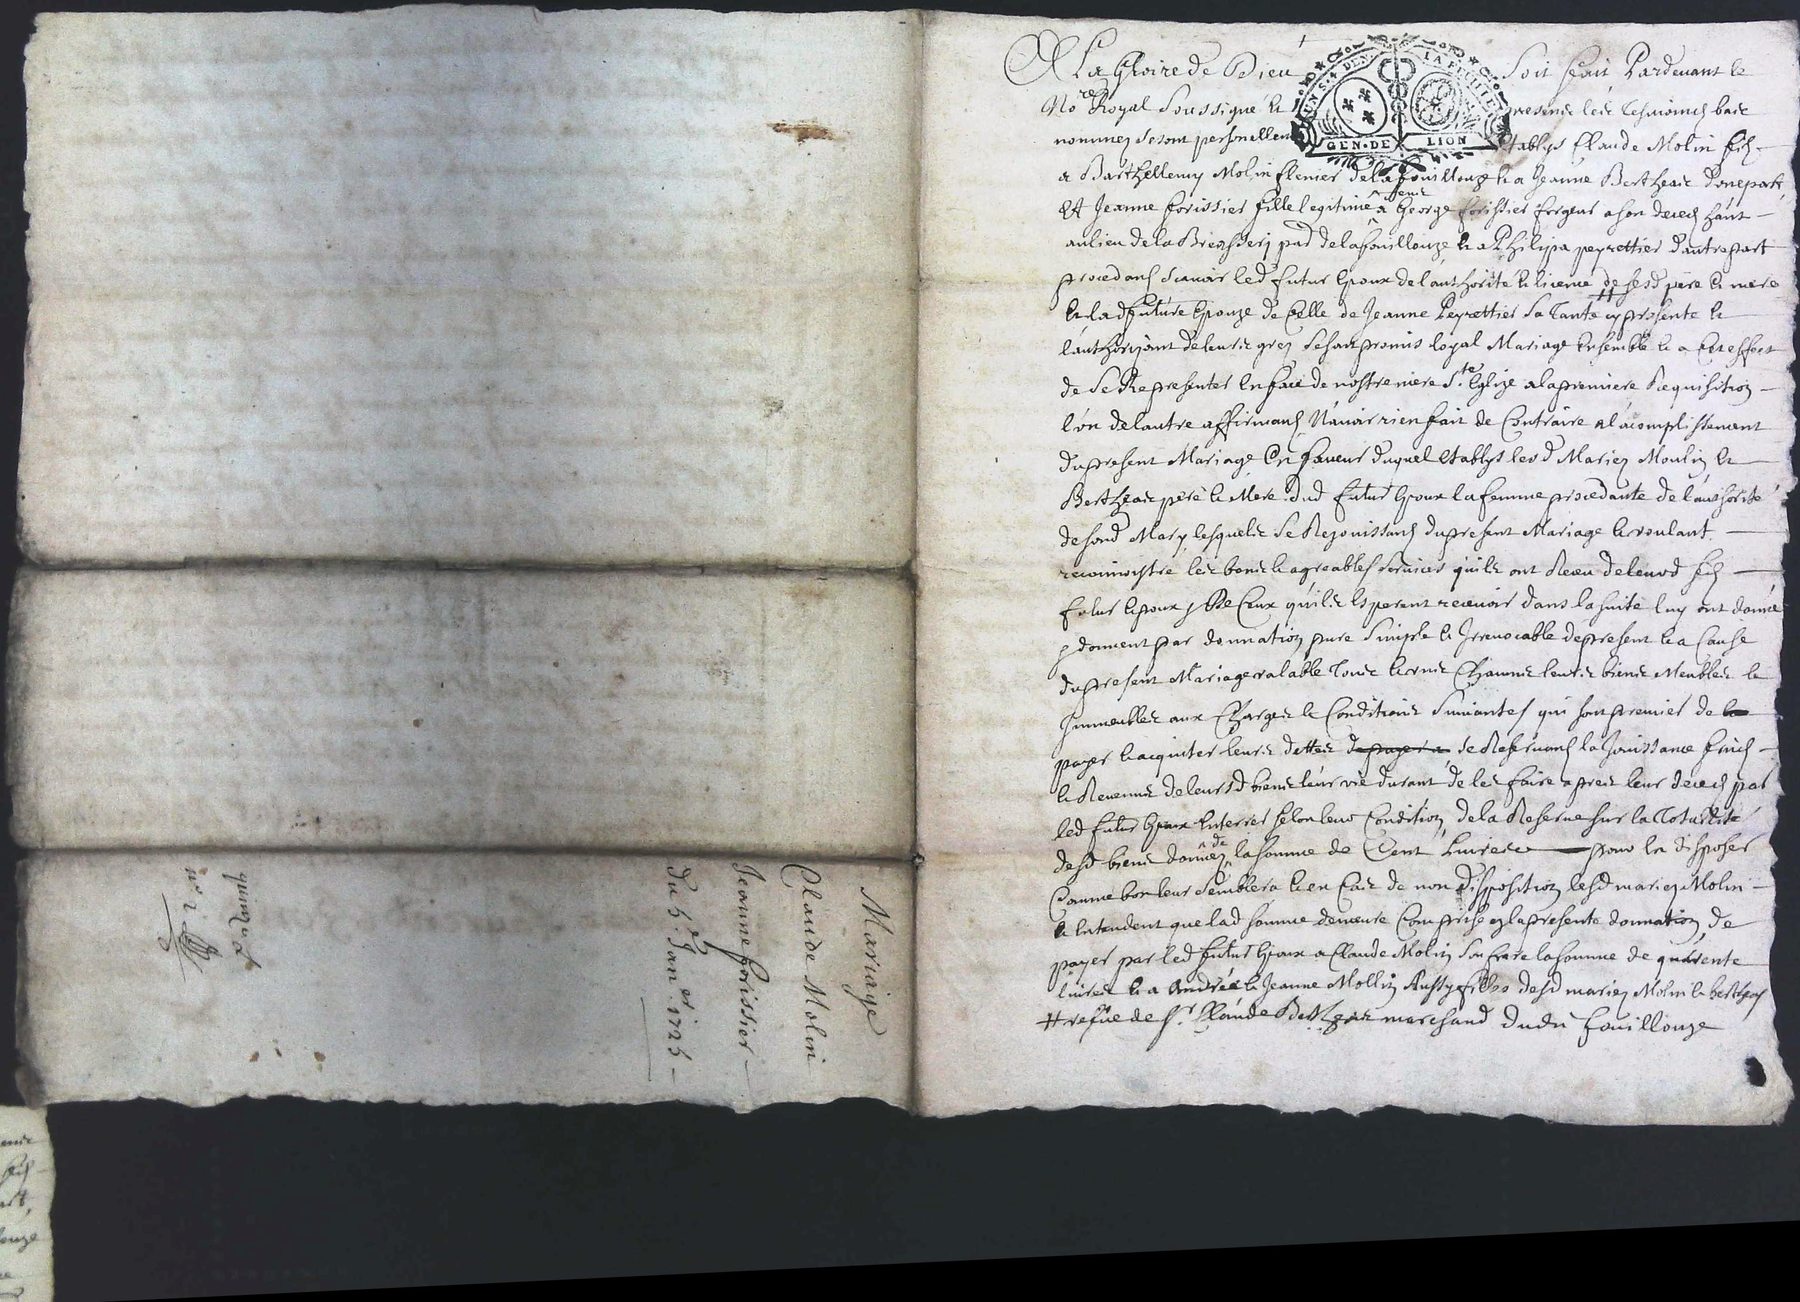 A La Gloire de Dieu Soit Scait Pardevant le
No.re Royal Soussigné et presence les tesmoings bas
nommez se sont personellem establys Claude Molin fils
a Barthellemy Molin de la fouillouze et a Jeanne Bertheas d'unepart
Et Jeanne forissier fille legitime a feu George forissier forgeur a son deces hant
au lieu de la par de lafouillouze et a Philipa peyrettier d'autrepart
procedans scavoir led futur Epoux de l'authorité et licence de sesd pere et mere
et lad future Epouze de Celle de Jeanne Peyrettier sa Tante cy presente et
l'authorizant de leurs grez se sont promis loyal Mariage Ensemble et a Cet effect
de se Representer En face de nostre mere S.te Eglize a la premiere Requisition
l'un de lautre affirmans N'avoir rien fait de Contraire a l'acomplissement
du present Mariage En faveur duquel establys lesd Mariez Moulin et
Bertheas pere et Mere dud futur Epoux la femme procedante de l'authorité
de sond Mary lesquels se Rejouissans du present Mariage et voulant
reconnoistre les bons et agreables services quils ont Receu de leurd fils
futur Epoux et de Ceux qu'ils Esperent recevoir dans la suite luy ont donné
et donnent par donnation pure simple et Irrevocable de present et a Cause
du present Mariage valable Tous et uns Chacuns leurs biens Meubles et
Immeubles aux Charges et Conditions suivantes qui sont premier de la
payer et acquiter leurs dettes de payer a se Reservans la Jouissance fruits
et Revenus de leursd biens leur vie durant de les faire apres leur deces par
led futur Epoux Enterrer selon leur Condition de la Reserve sur la Totallité
desd biens donnez de la somme de Cent Livres pour En disposer
Comme bon leur semblera et en Cas de non disposition lesd mariez Molin
Entendent que lad somme demeure Comprise en la presente donnation de
payer par led futur Epoux a Claude Molin son frere la somme de quarente
livres et a Andrée et Jeanne Mollin Aussy filles desd mariez Molin et Bertheas
# de S.r Claude Bertheas marchand dudit fouillouze
GEN. DE LION
Mariage
Claude Molin
et Jeanne forissier
du 5.e Janer. 1725